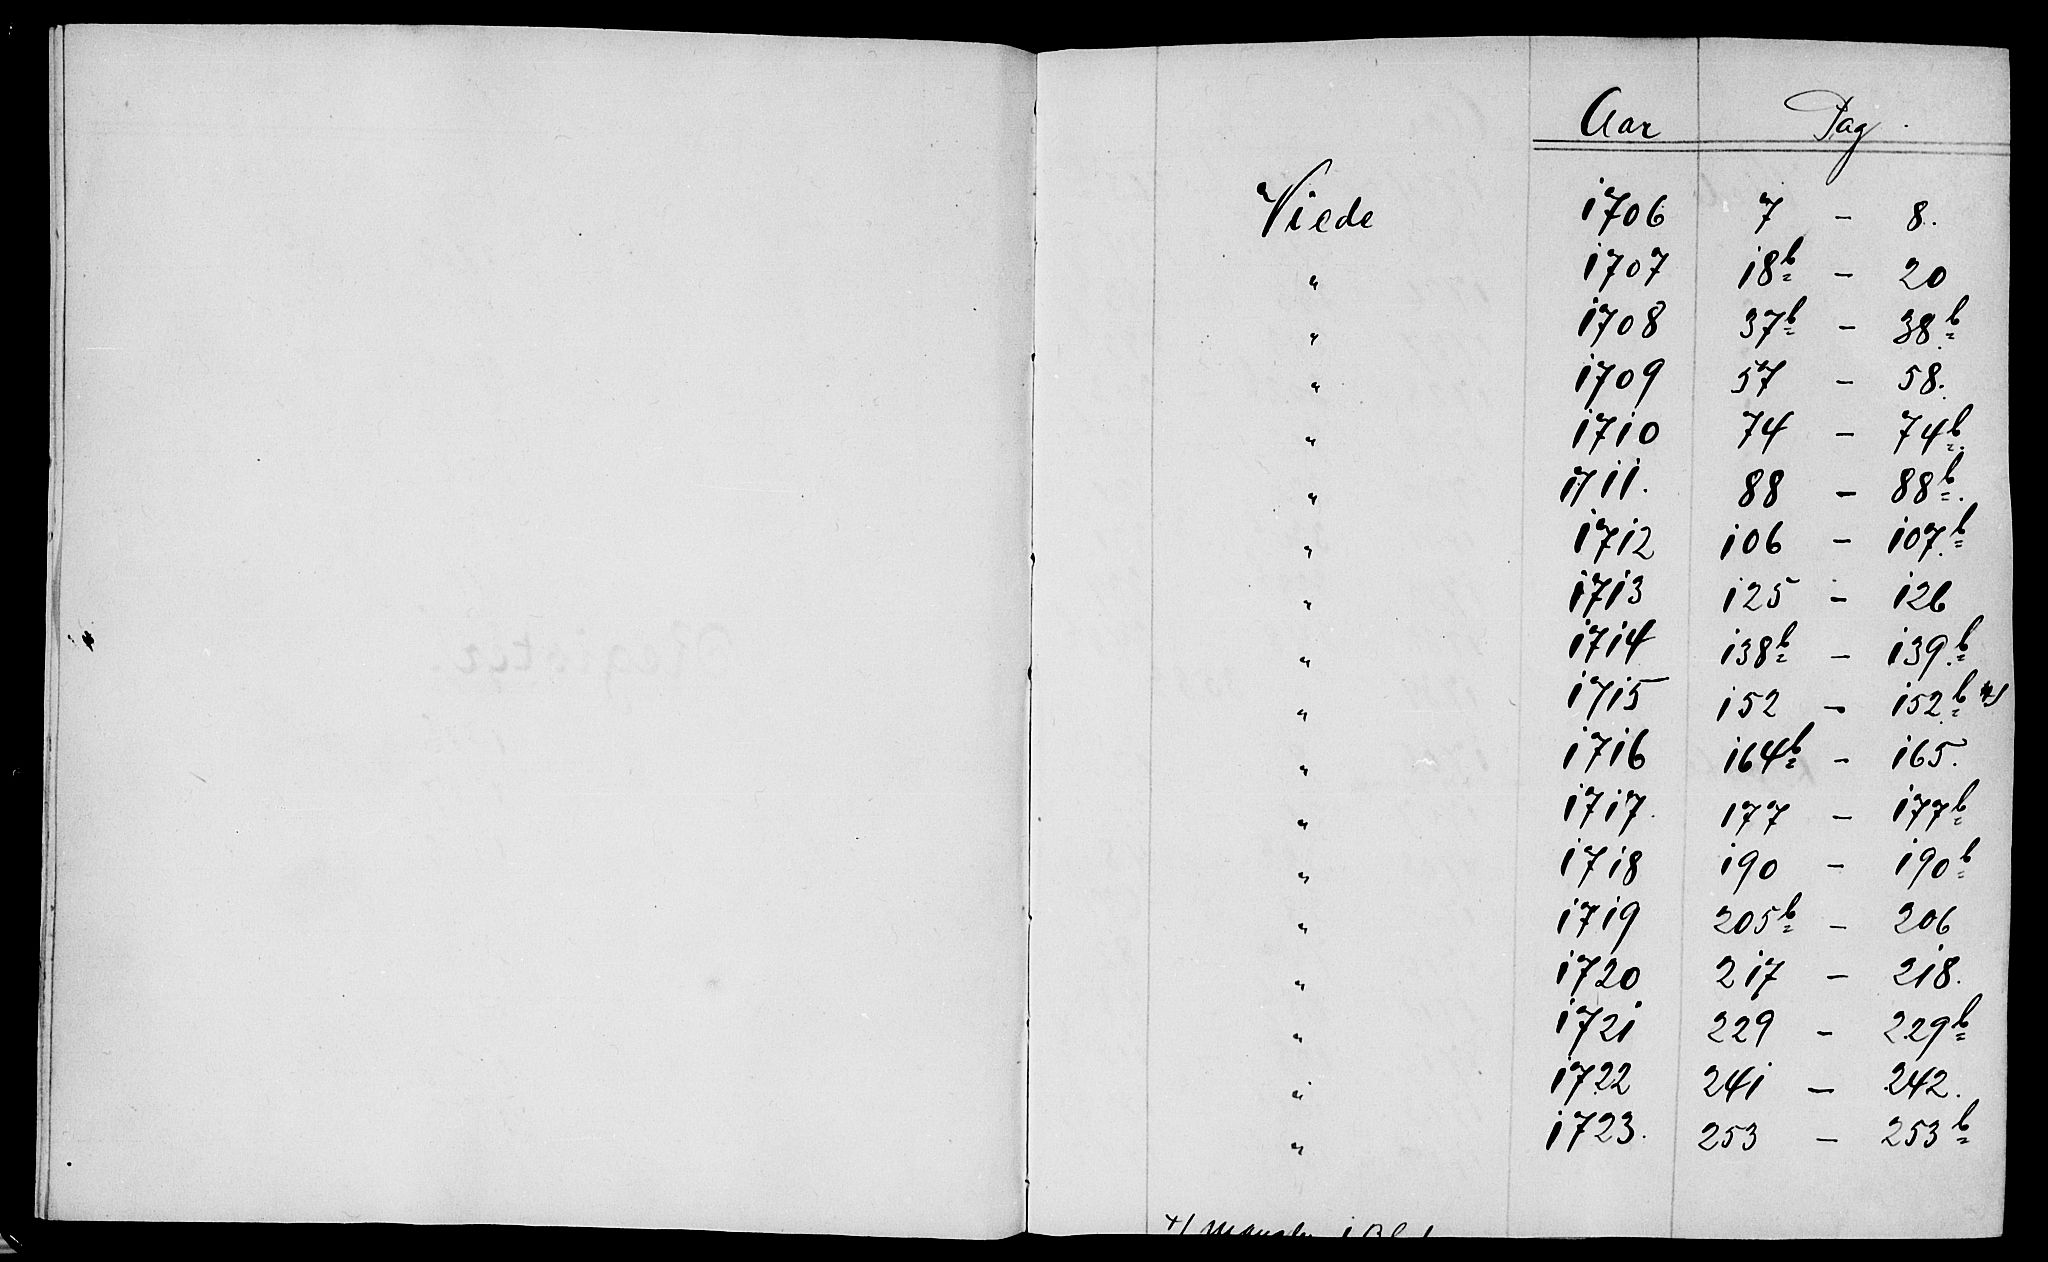 Aar Pag.
Viede 1706 7 - 8.
" 1707 18b - 20
" 1708 37b - 38b
" 1709 57 - 58.
" 1710 74 - 74b.
" 1711. 88 - 88b.
" 1712 106 - 107b
" 1713 125 - 126
" 1714 138b - 139b
" 1715 152 - 152b *)
" 1716 164b - 165.
" 1717. 177 - 177b
" 1718 190 - 190b
" 1719 205b - 206
" 1720 217 - 218.
" 1721 229 - 229b
" 1722 241 - 242.
" 1723. 253 - 253b